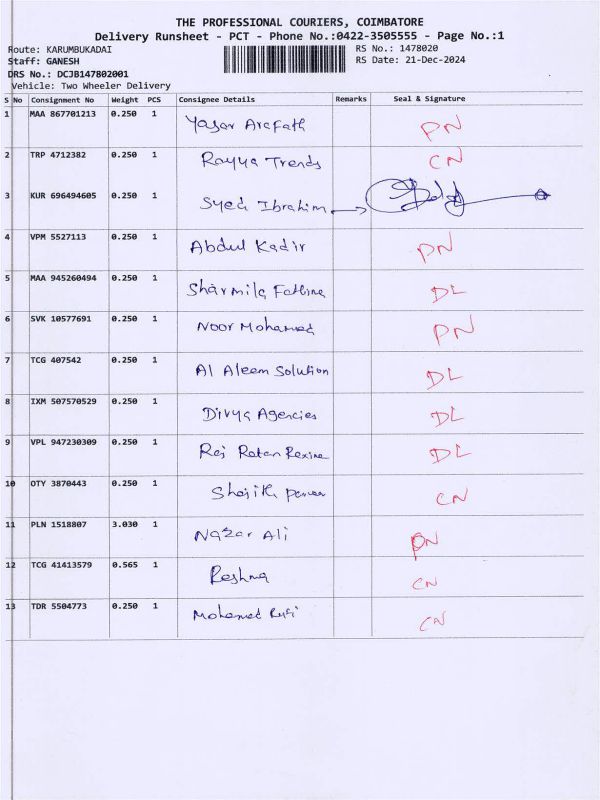 THE PROFESSIONAL COURIERS, COIMBATORE
Delivery Runsheet - PCT - Phone No.:0422-3505555 - Page No.:1
Route: KARUMBUKADAI RS No.: 1478020
Staff: GANESH RS Date: 21-Dec-2024
DRS No.: DCJB147802001
Vehicle: Two Wheeler Delivery
S No Consignment No Weight PCS Consignee Details Remarks Seal & Signature
1 MAA 867701213 0.250 1 Yasar Arafath PN
2 TRP 4712382 0.250 1 Rayya Trends CN
3 KUR 696494605 0.250 1 Syed Ibrahim
4 VPM 5527113 0.250 1 Abdul Kadir PN
5 MAA 945260494 0.250 1 Sharmila DL
6 SVK 10577691 0.250 1 Noor Mohamed PN
7 TCG 407542 0.250 1 Al Aleem Solution DL
8 IXM 507570529 0.250 1 Divya Agencies DL
9 VPL 947230309 0.250 1 Raj Ratan Rexine DL
10 OTY 3870443 0.250 1 CN
11 PLN 1518807 3.030 1 Nazar Ali PN
12 TCG 41413579 0.565 1 Reshma CN
13 TDR 5504773 0.250 1 Mohamed CN